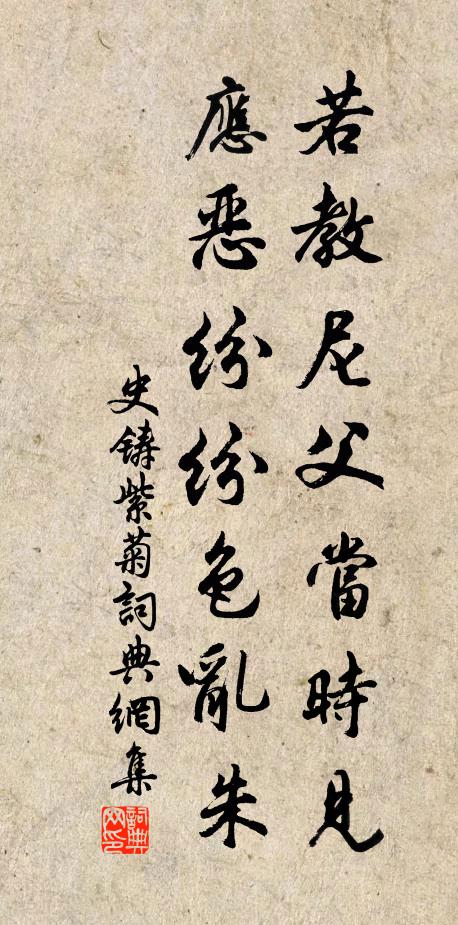 若教尼父當時見
應惡紛紛色亂朱
史鑄紫菊詞典網集
詞典网印